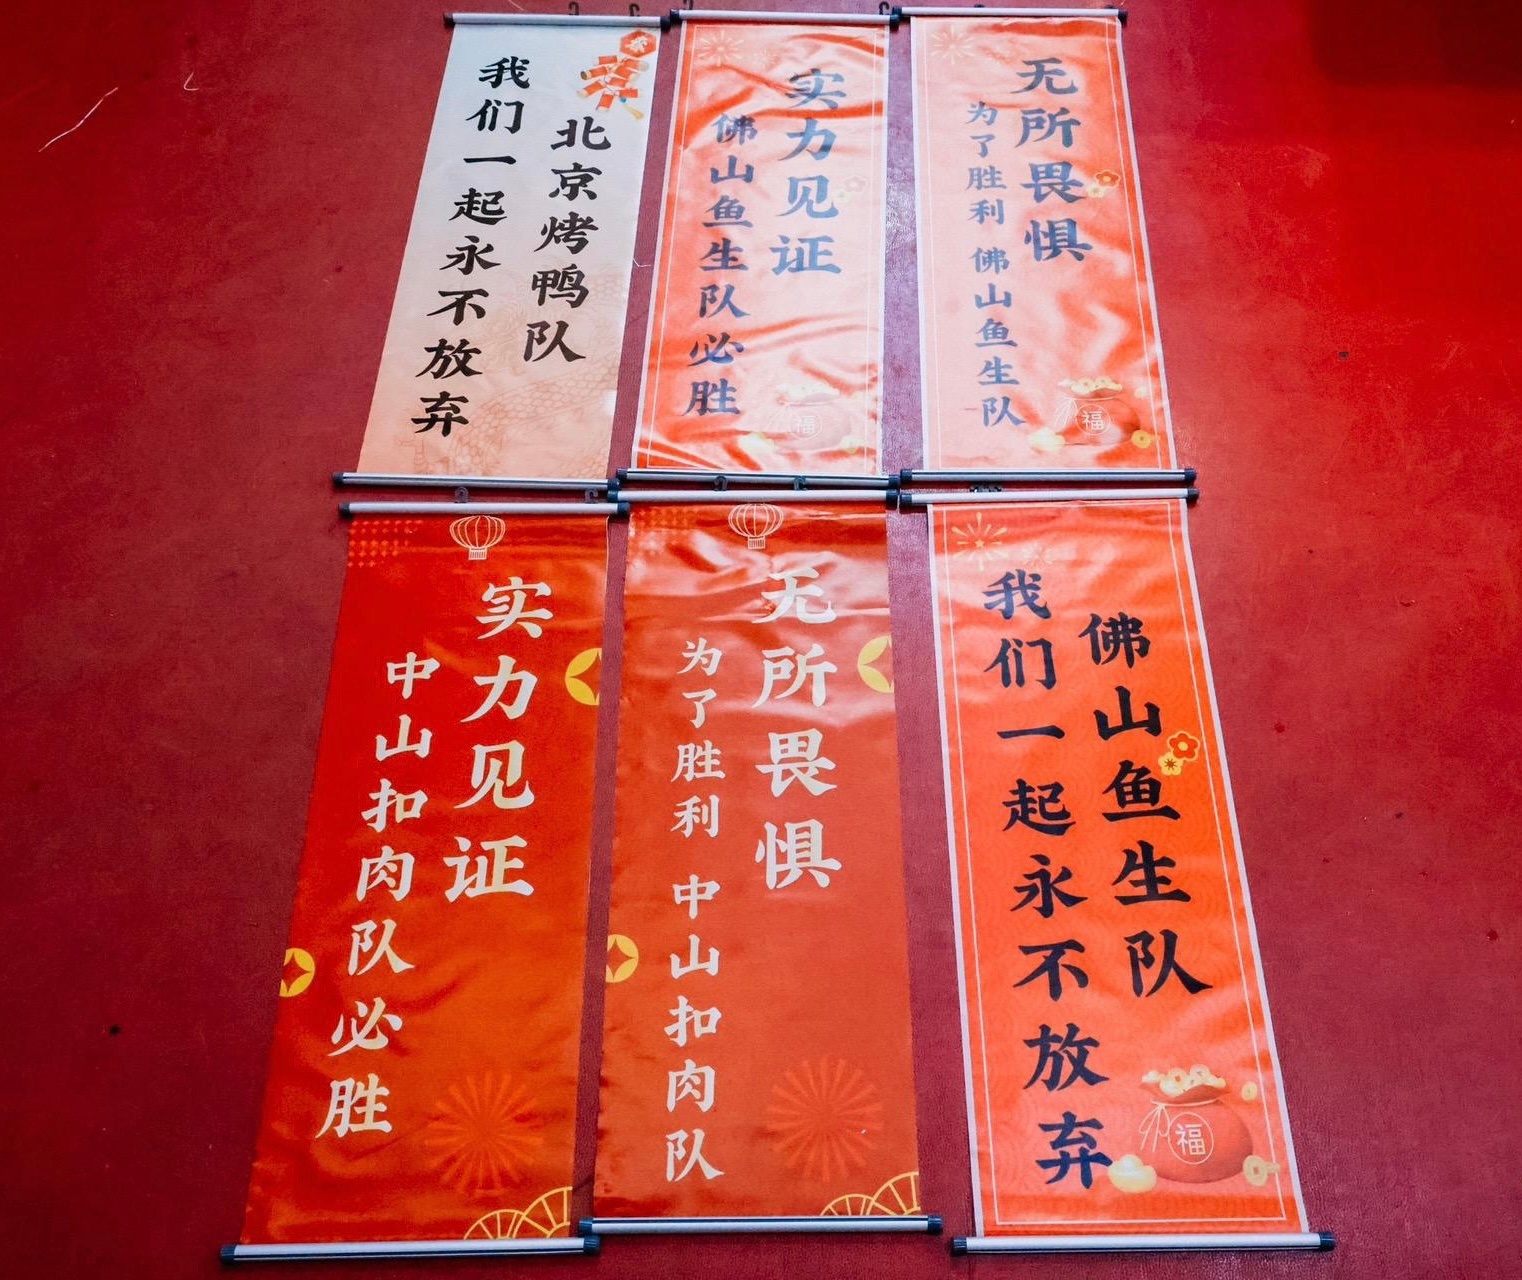 北京烤鸭队
我们一起永不放弃
实力见证
佛山鱼生队必胜
福
无所畏惧
为了胜利 佛山鱼生队
福
实力见证
中山扣肉队必胜
无所畏惧
为了胜利 中山扣肉队
佛山鱼生队
我们一起永不放弃
福